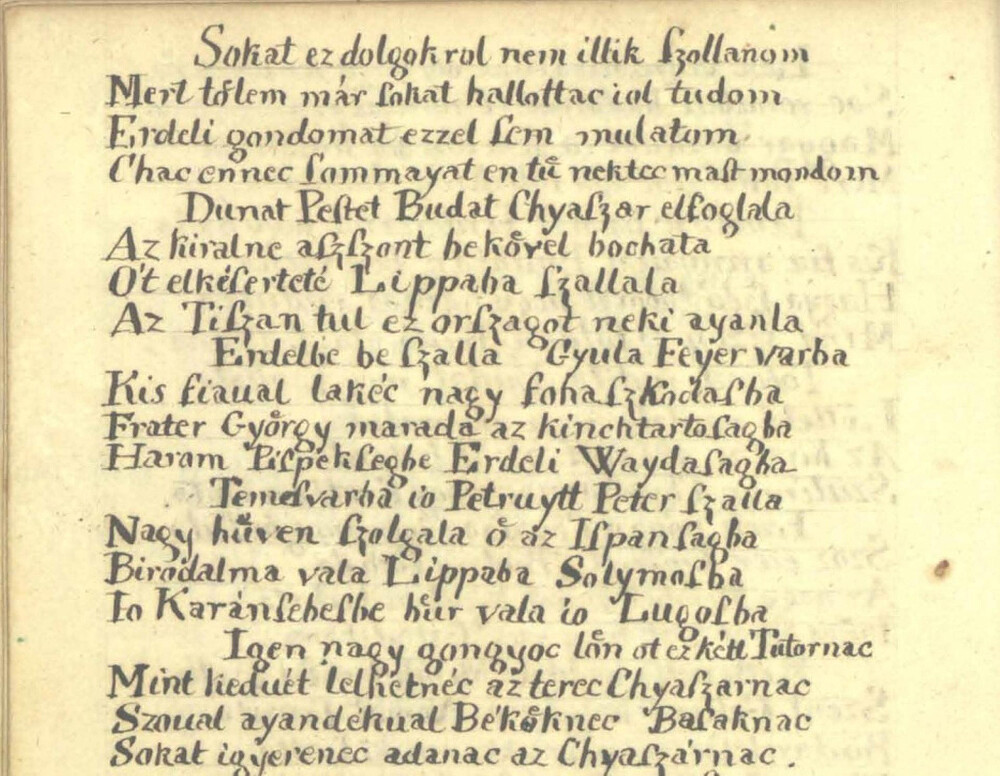 Sokat ez dolgokrol nem illik ſzollanom
Mert tőlem már ſokat hallottac iol tudom
Erdeli gondomat ezzel ſem mulatom
Chac ennec ſommayat en tű nektec maſt mondom
Dunat Peſtet Budat Chyaſzar elfoglala
Az kiralne aſzſzont bekővel bochata
Ot elkéſerteté Lippaba ſzallala
Az Tiſzan tul ez orſzagot neki ayanla
Erdelbe be ſzalla Gyula Feyer varba
Kis fiaual lakéc nagy fohaſzkodaſba
Frater Győrgy marada az kinchtartoſagba
Harom Piſpekſegbe Erdeli Waydaſagba
Temeſvarba io Petruytt Peter ſzalla
Nagy hűven ſzolgala ő az Iſpanſagba
Birodalma vala Lippaba Solymoſba
Io Karánſebeſbe hűr vala io Lugoſba
Igen nagy gongyoc lőn ot ez kétt Tutornac
Mint keduét lelhetnéc az terec Chyaſzarnac
Szoual ayandékual Békőknec Baſaknac
Sokat igyerenec adanac az Chyaſzárnac.